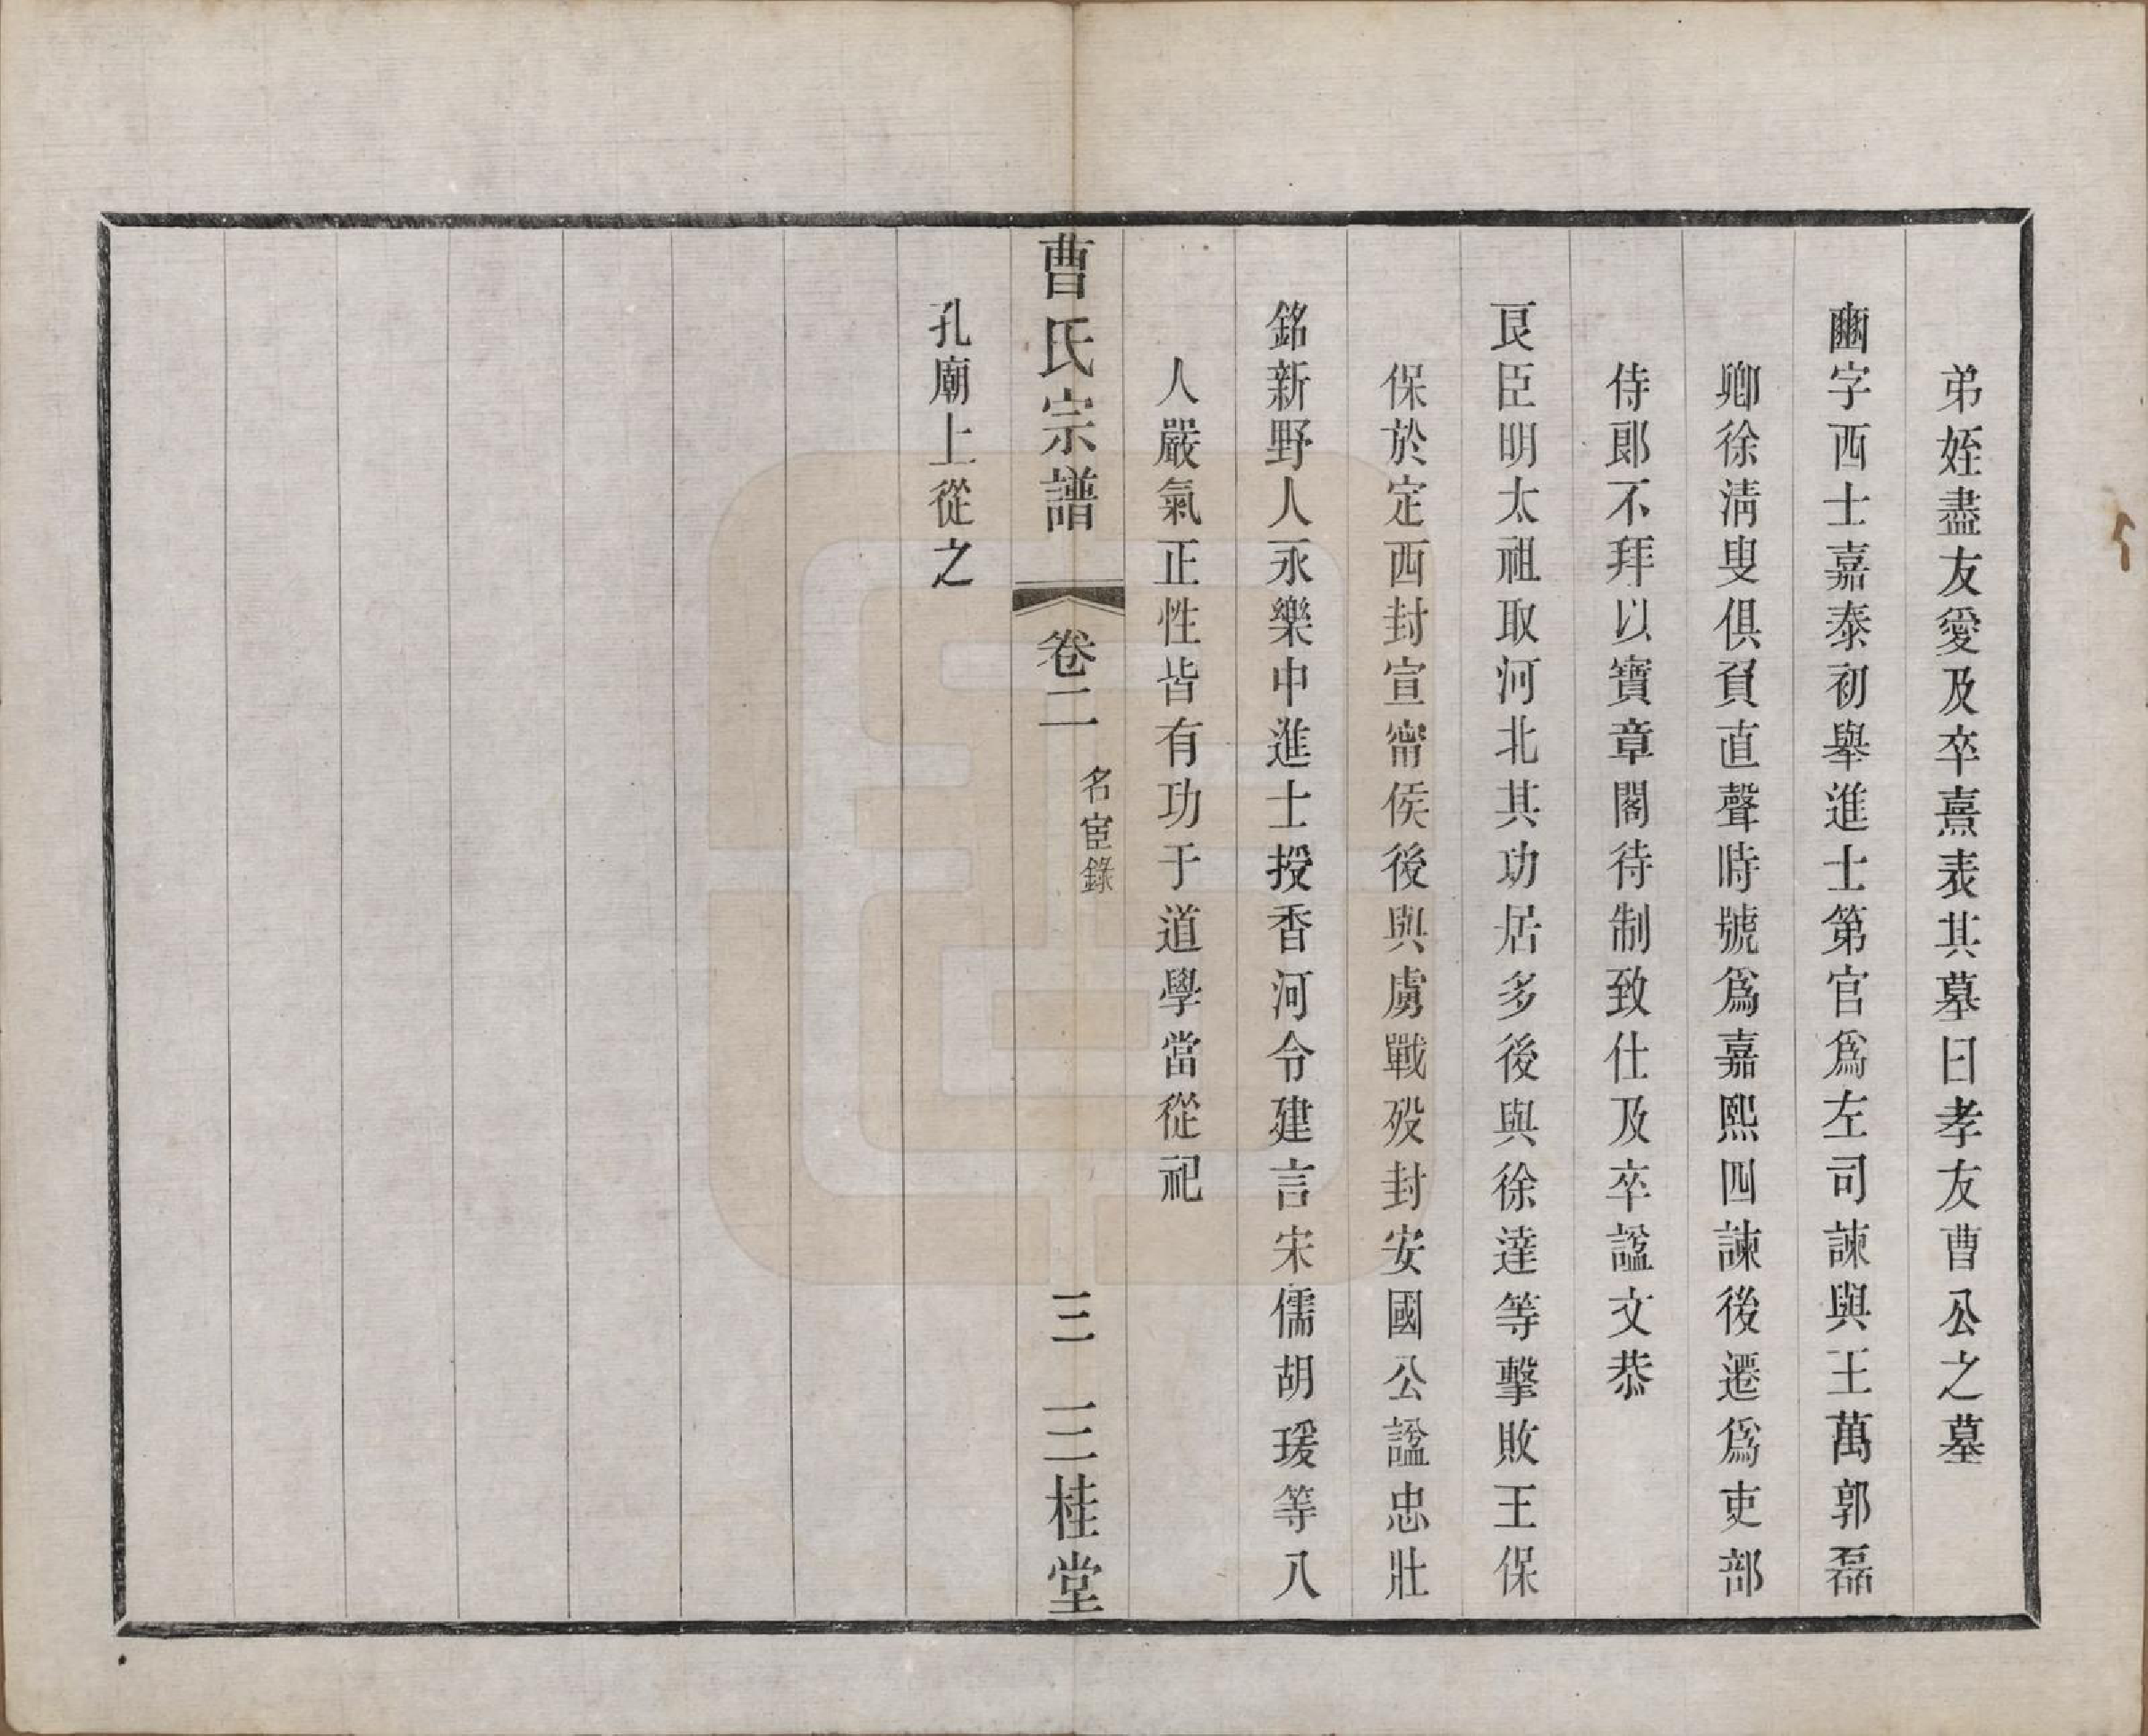 弟姪盡友愛及卒熹表其墓曰孝友曹公之墓
豳字西士嘉泰初舉進士第官爲左司諫與王萬郭磊
卿徐淸叟俱負直聲時號爲嘉熙四諫後遷爲吏部
侍郞不拜以寶章閣待制致仕及卒諡文恭
良臣明太祖取河北其功居多後與徐達等擊敗王保
保於定西封宣甯侯後與虜戰歿封安國公諡忠壯
銘新野人永樂中進士授香河令建言宋儒胡瑗等八
人嚴氣正性皆有功于道學當從祀
曹氏宗譜
卷二
名宦錄
三
三桂堂
孔廟上從之